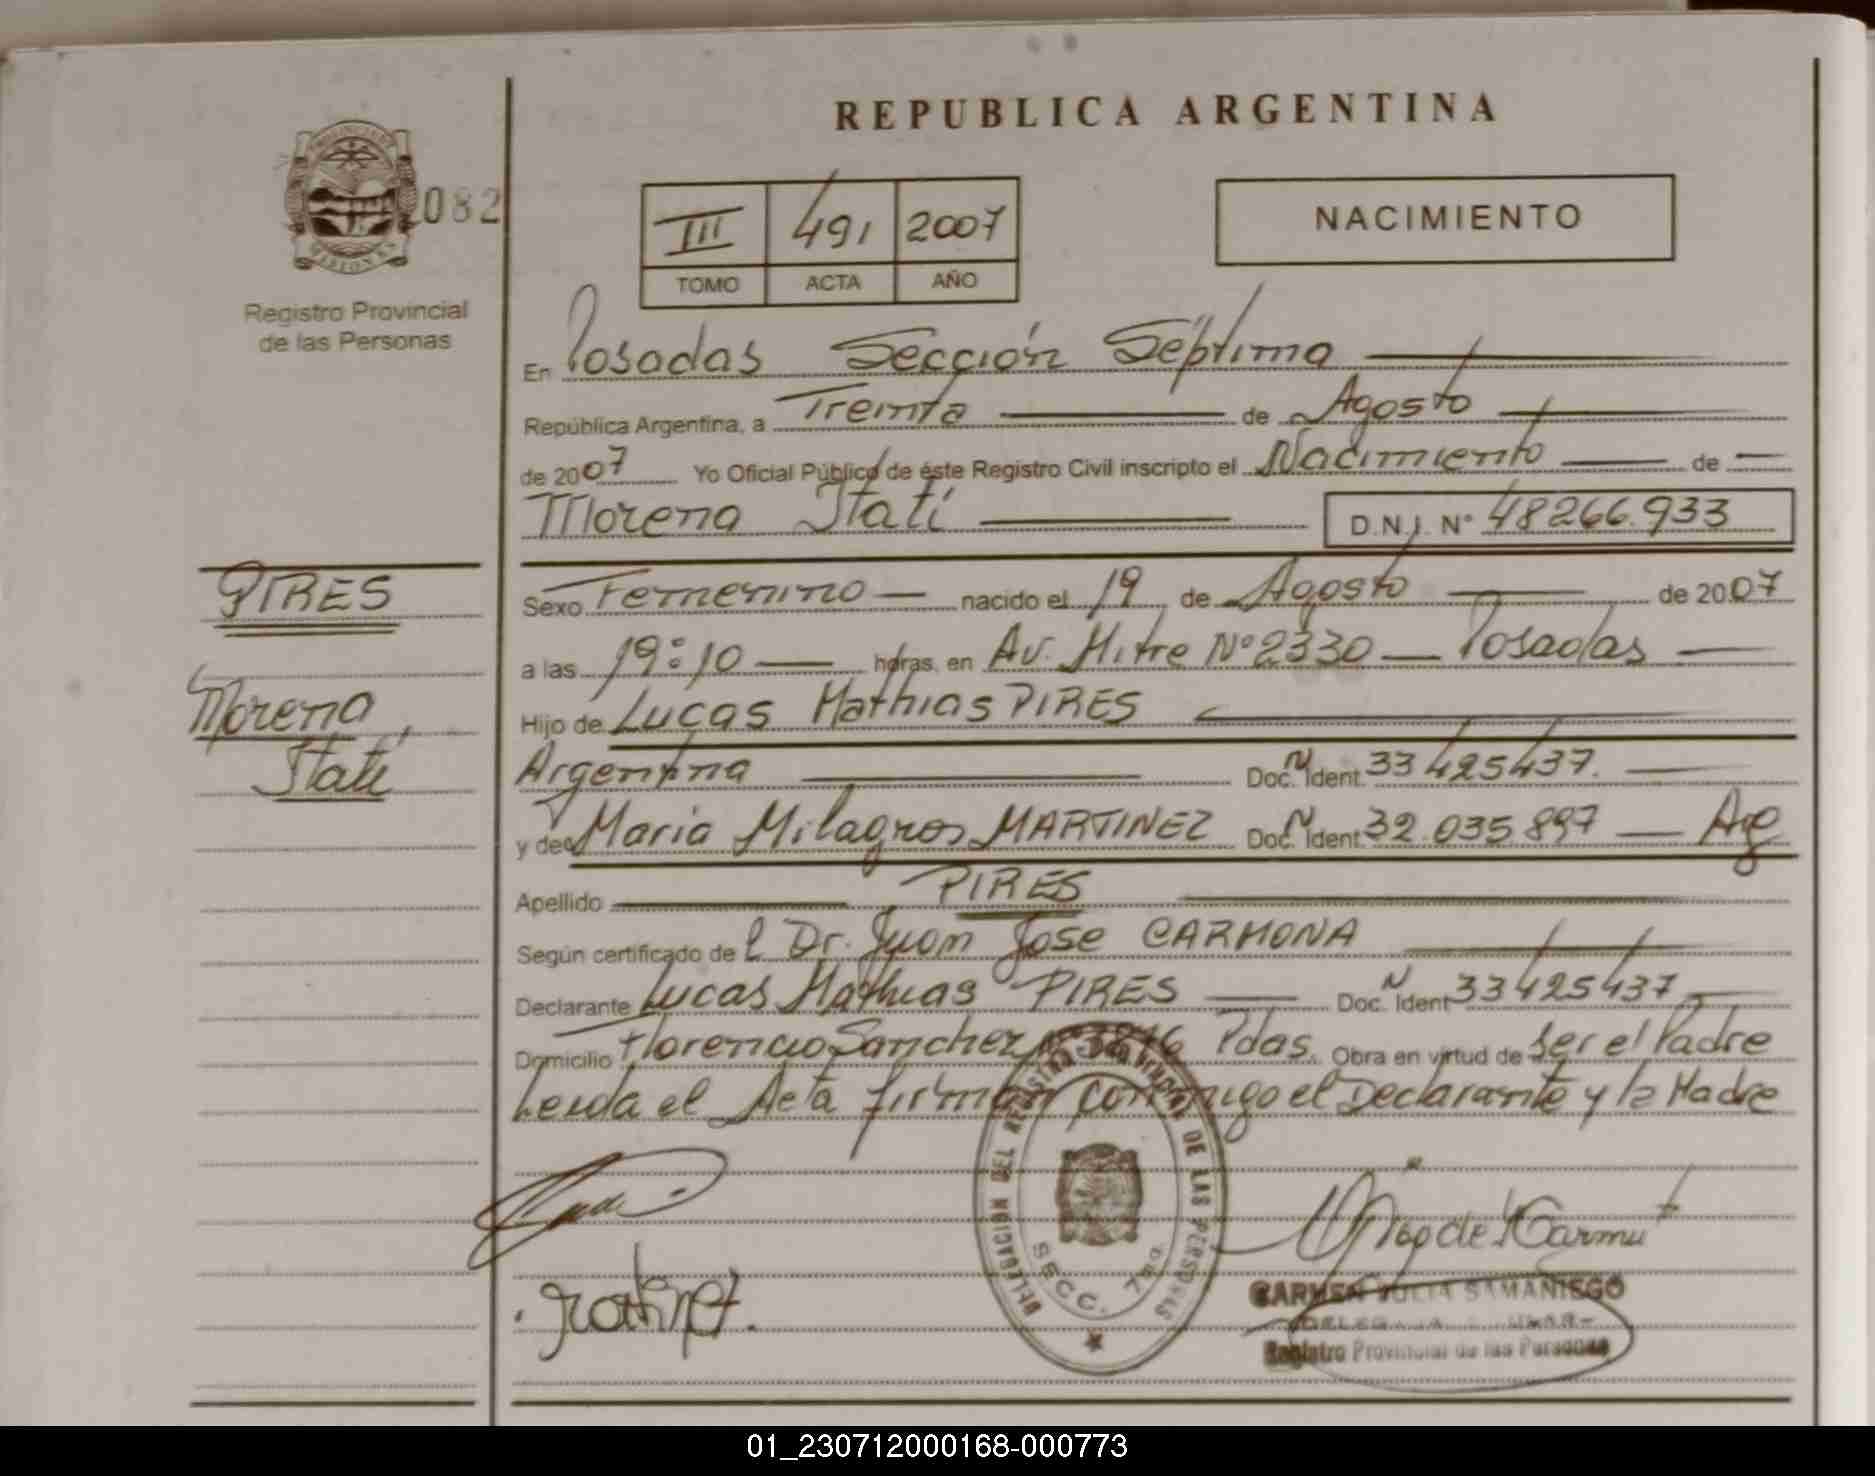 REPUBLICA ARGENTINA
PROVINCIA DE
MISIONES
082
III 491 2007
TOMO ACTA AÑO
NACIMIENTO
Registro Provincial
de las Personas
En Posadas Sección Séptima
República Argentina, a Treinta de Agosto
de 2007 Yo Oficial Público de éste Registro Civil inscripto el Nacimiento de
Morena Itatí D.N.I. N° 48266.933
PIRES
Morena
Itatí
Sexo Femenino nacido el 19 de Agosto de 2007
a las 19:10 horas, en Av. Mitre N°2330 Posadas
Hijo de Lucas Mathias PIRES
Argentina Doc. N Ident. 33425437.
y de Maria Milagros MARTINEZ Doc. N Ident. 32.035.897 Arg
Apellido PIRES
Según certificado de l Dr. Juan Jose CARMONA
Declarante Lucas Mathias PIRES Doc. N Ident 33425437
Domicilio Florencio Sanchez N° 3816 Pdas. Obra en virtud de ser el Padre
Leida el Acta firman conmigo el Declarante y la Madre
DELEGACION DEL REGISTRO PROVINCIAL DE LAS PERSONAS
SECC. 7ma.
CARMEN JULIA SAMANIEGO
Registro Provincial de las Personas
01_230712000168-000773